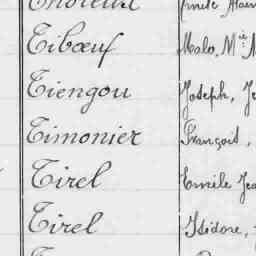 Tibœuf Malo, Mie M
Tiengou Joseph, Je
Timonier François,
Tirel Emile Jea
Tirel Isidore,